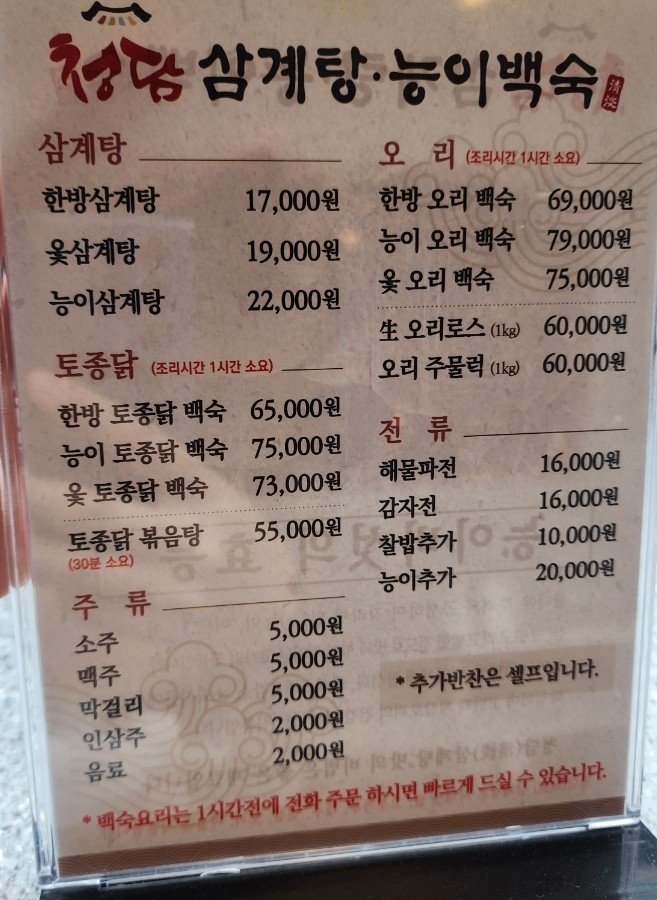 청담 삼계탕·능이백숙
清淡
삼계탕
한방삼계탕 17,000원
옻삼계탕 19,000원
능이삼계탕 22,000원
토종닭 (조리시간 1시간 소요)
한방 토종닭 백숙 65,000원
능이 토종닭 백숙 75,000원
옻 토종닭 백숙 73,000원
토종닭 볶음탕 55,000원
(30분 소요)
주 류
소주 5,000원
맥주 5,000원
막걸리 5,000원
인삼주 2,000원
음료 2,000원
오 리 (조리시간 1시간 소요)
한방 오리 백숙 69,000원
능이 오리 백숙 79,000원
옻 오리 백숙 75,000원
生 오리로스 (1kg) 60,000원
오리 주물럭 (1kg) 60,000원
전 류
해물파전 16,000원
감자전 16,000원
찰밥추가 10,000원
능이추가 20,000원
* 추가반찬은 셀프입니다.
* 백숙요리는 1시간전에 전화 주문 하시면 빠르게 드실 수 있습니다.